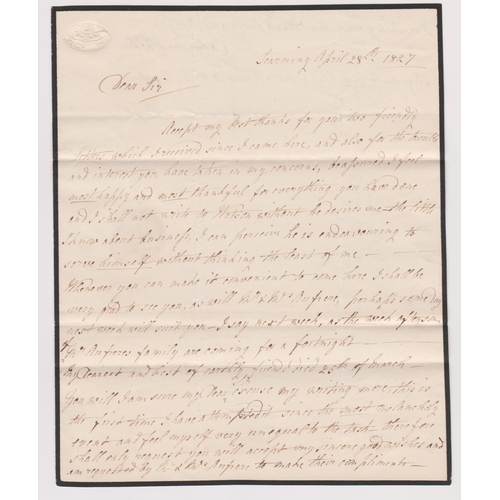 Scarning April 28th. 1827
Dear Sir
Accept my best thanks for your two friendly
letters which I received since I came here, and also for the trouble
and interest you have taken in my concerns, be assured I feel
most happy and most thankful for everything you have done
and I shall not write to Watson without he desires me the little
I know about business, I can perceive he is endeavouring to
serve himself without thinking the least of me —
Whenever you can make it convenient to come here I shall be
very glad to see you, as will Mr. & Mrs. Anfrere, perhaps some day
next week will suit you — I say next week, as the week after
Mrs. Anfreres family are coming for a fortnight —
My dearest and best of earthly friends died 25th of March
You will I am sure my Dear Sir excuse my writing more, this is
the first time I have attempted it since the most melancholy
event and feel myself very unequal to the task therefore
shall only request you will accept my sincere good wishes and
am requested by Mr. & Mrs. Anfrere to make their compliments —